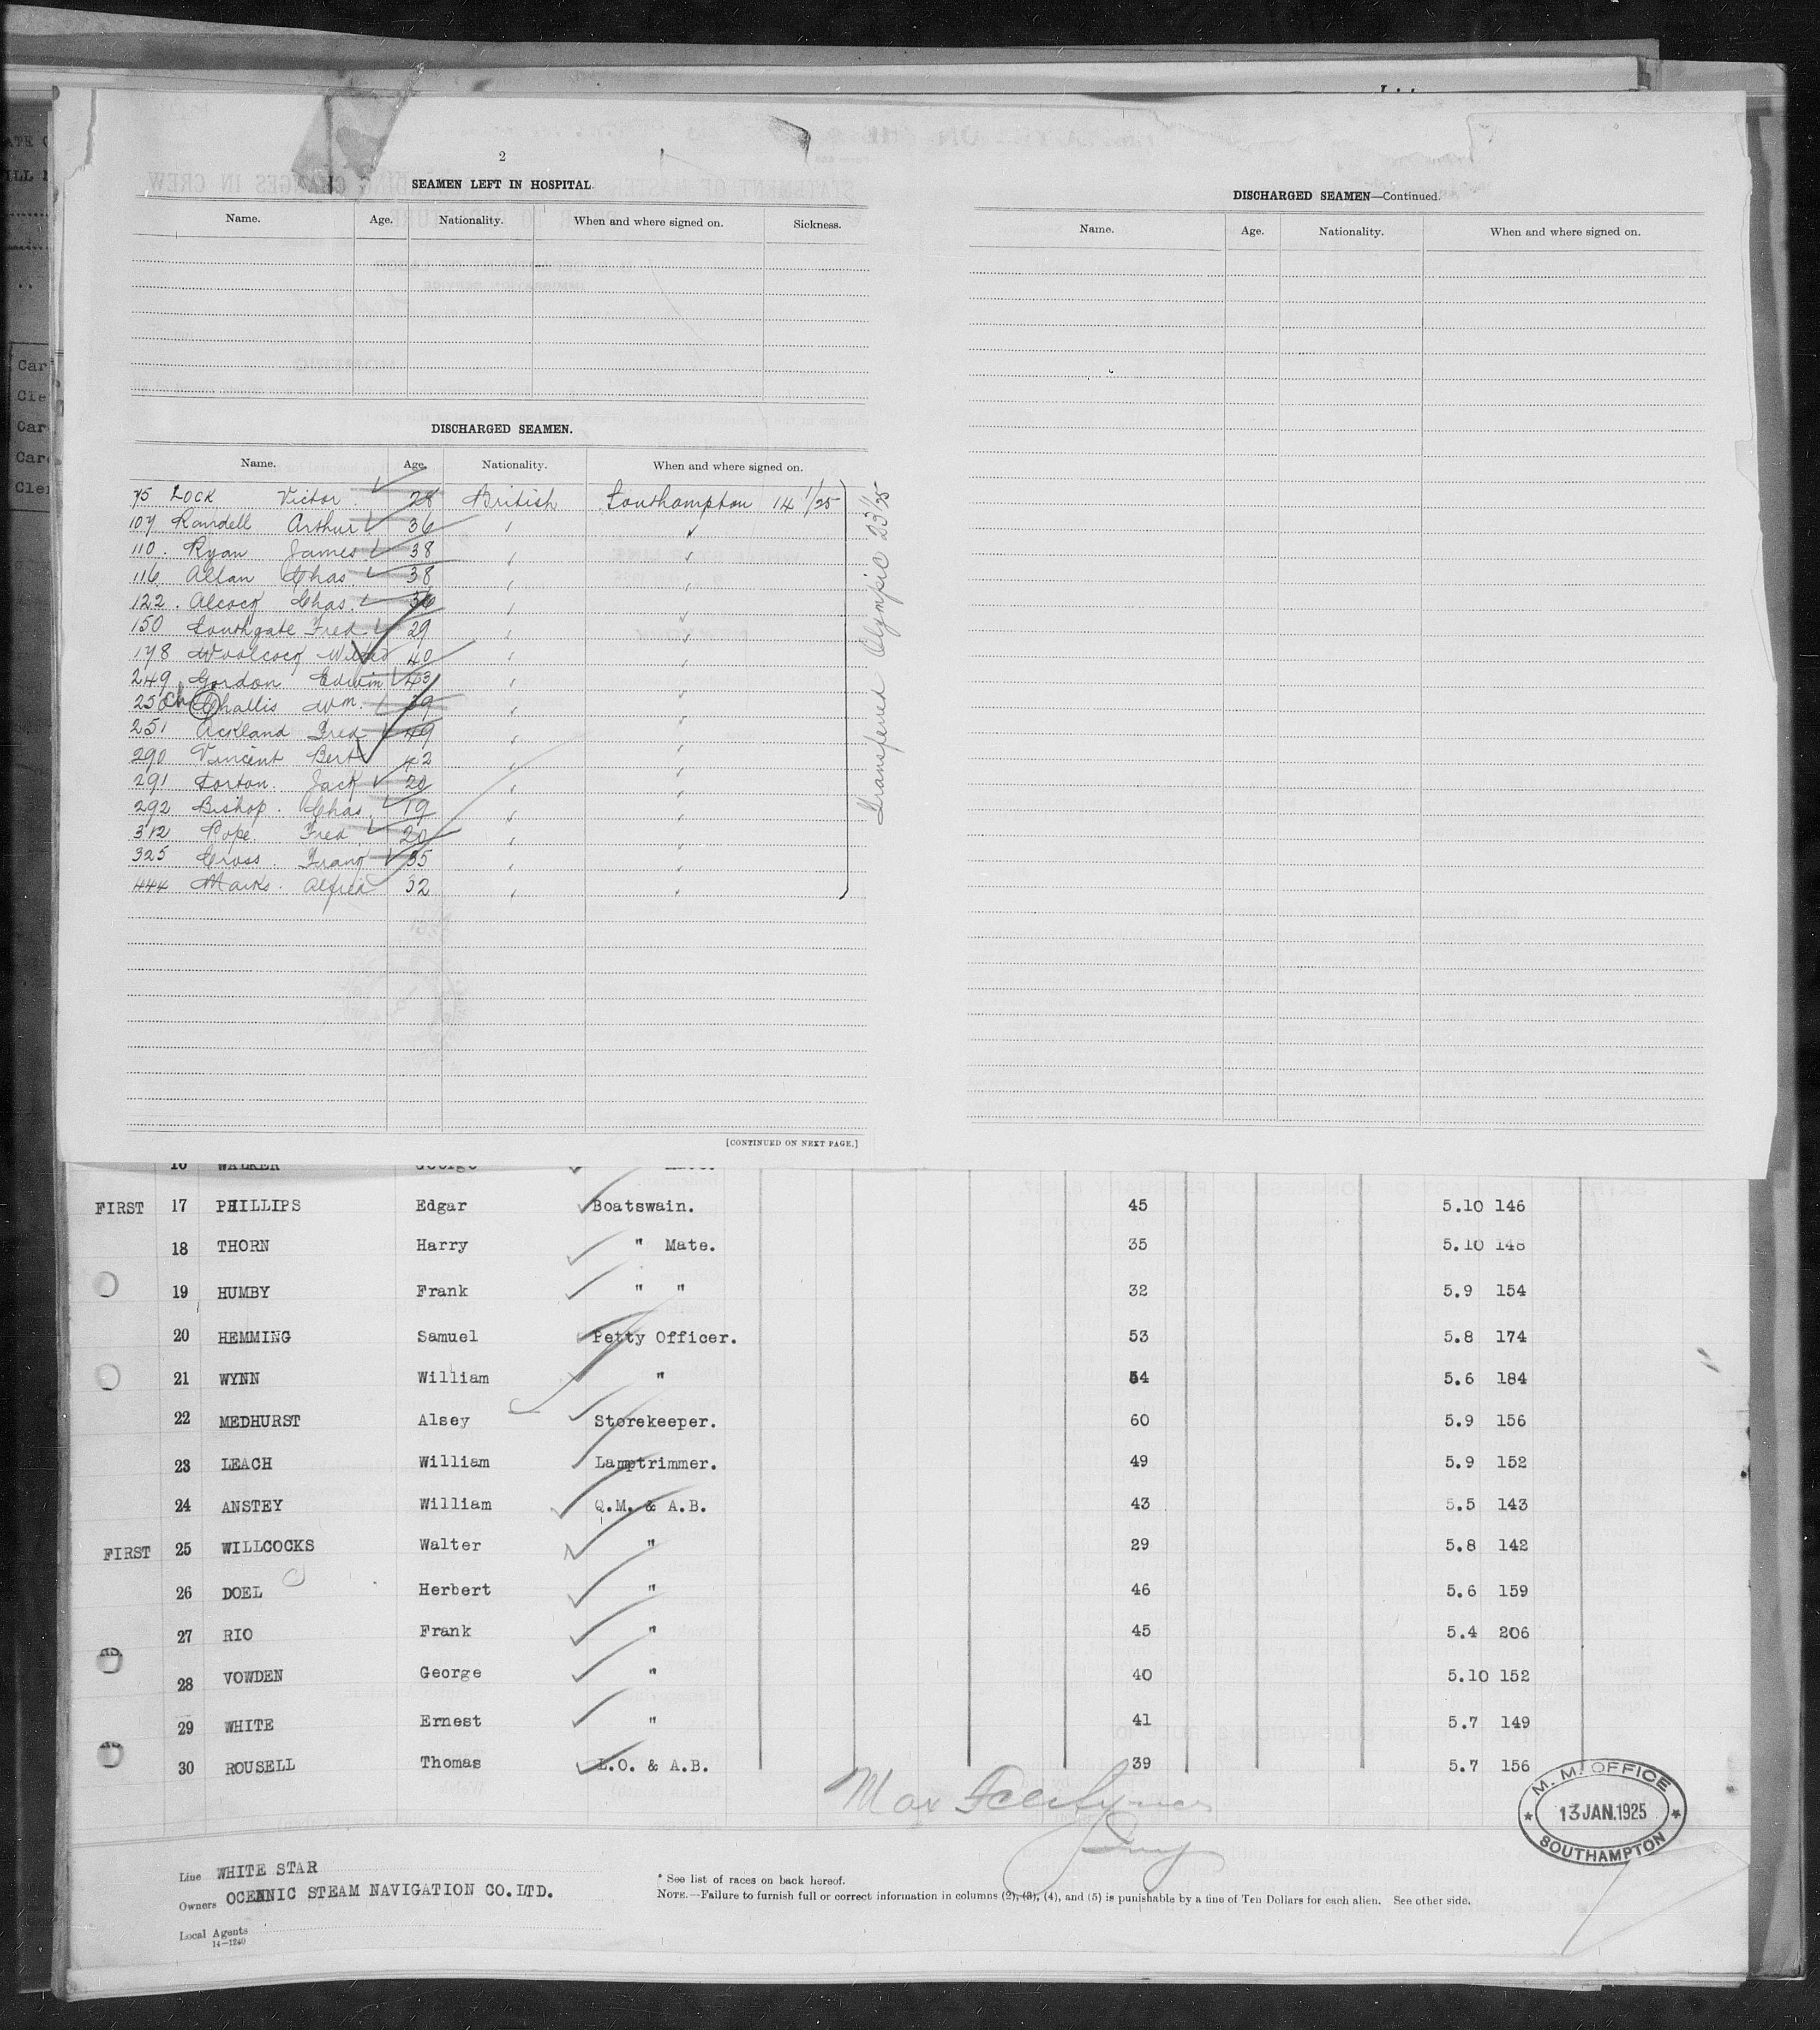 2
SEAMEN LEFT IN HOSPITAL.
Name. Age. Nationality. When and where signed on. Sickness.
DISCHARGED SEAMEN.
Name. Age. Nationality. When and where signed on.
75 Lock Victor 28 British Southampton 14 1/25
107 Randell Arthur 36 " "
110. Ryan James 38 " "
116. Allan Chas. 38 " "
122. Alcock Chas. 36 " "
150 Southgate Fred 29 " "
178 Woolcock Wilfred 40 " "
249 Gordon Edwin 43 " "
250 Ch Challis Wm. 39 " "
251 Ackland Fred 49 " "
290 Vincent Bert 42 " "
291 Sorton. Jack 20 " "
292 Bishop. Chas 19 " "
312 Pope Fred 20 " "
325 Cross. Frank 35 " "
444 Marks. Alfred 32 " "
Transferred Olympic 23 1/25
[CONTINUED ON NEXT PAGE.]
DISCHARGED SEAMEN—Continued.
Name. Age. Nationality. When and where signed on.
16 WALKER George
FIRST 17 PHILLIPS Edgar Boatswain. 45 5.10 146
18 THORN Harry " Mate. 35 5.10 148
19 HUMBY Frank " " 32 5.9 154
20 HEMMING Samuel Petty Officer. 53 5.8 174
21 WYNN William " 54 5.6 184
22 MEDHURST Alsey Storekeeper. 60 5.9 156
23 LEACH William Lamptrimmer. 49 5.9 152
24 ANSTEY William Q.M. & A.B. 43 5.5 143
FIRST 25 WILLCOCKS Walter " 29 5.8 142
26 DOEL Herbert " 46 5.6 159
27 RIO Frank " 45 5.4 206
28 VOWDEN George " 40 5.10 152
29 WHITE Ernest " 41 5.7 149
30 ROUSELL Thomas L.O. & A.B. 39 5.7 156
M. M. OFFICE
13 JAN. 1925
SOUTHAMPTON
Line WHITE STAR
Owners OCEANIC STEAM NAVIGATION CO.LTD.
Local Agents
14—1240
* See list of races on back hereof.
NOTE.—Failure to furnish full or correct information in columns (2), (3), (4), and (5) is punishable by a fine of Ten Dollars for each alien. See other side.